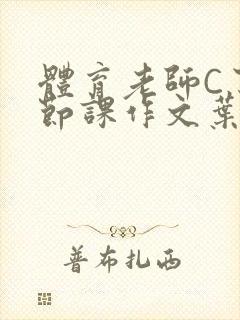 體育老師C
節課作文葉
普布扎西